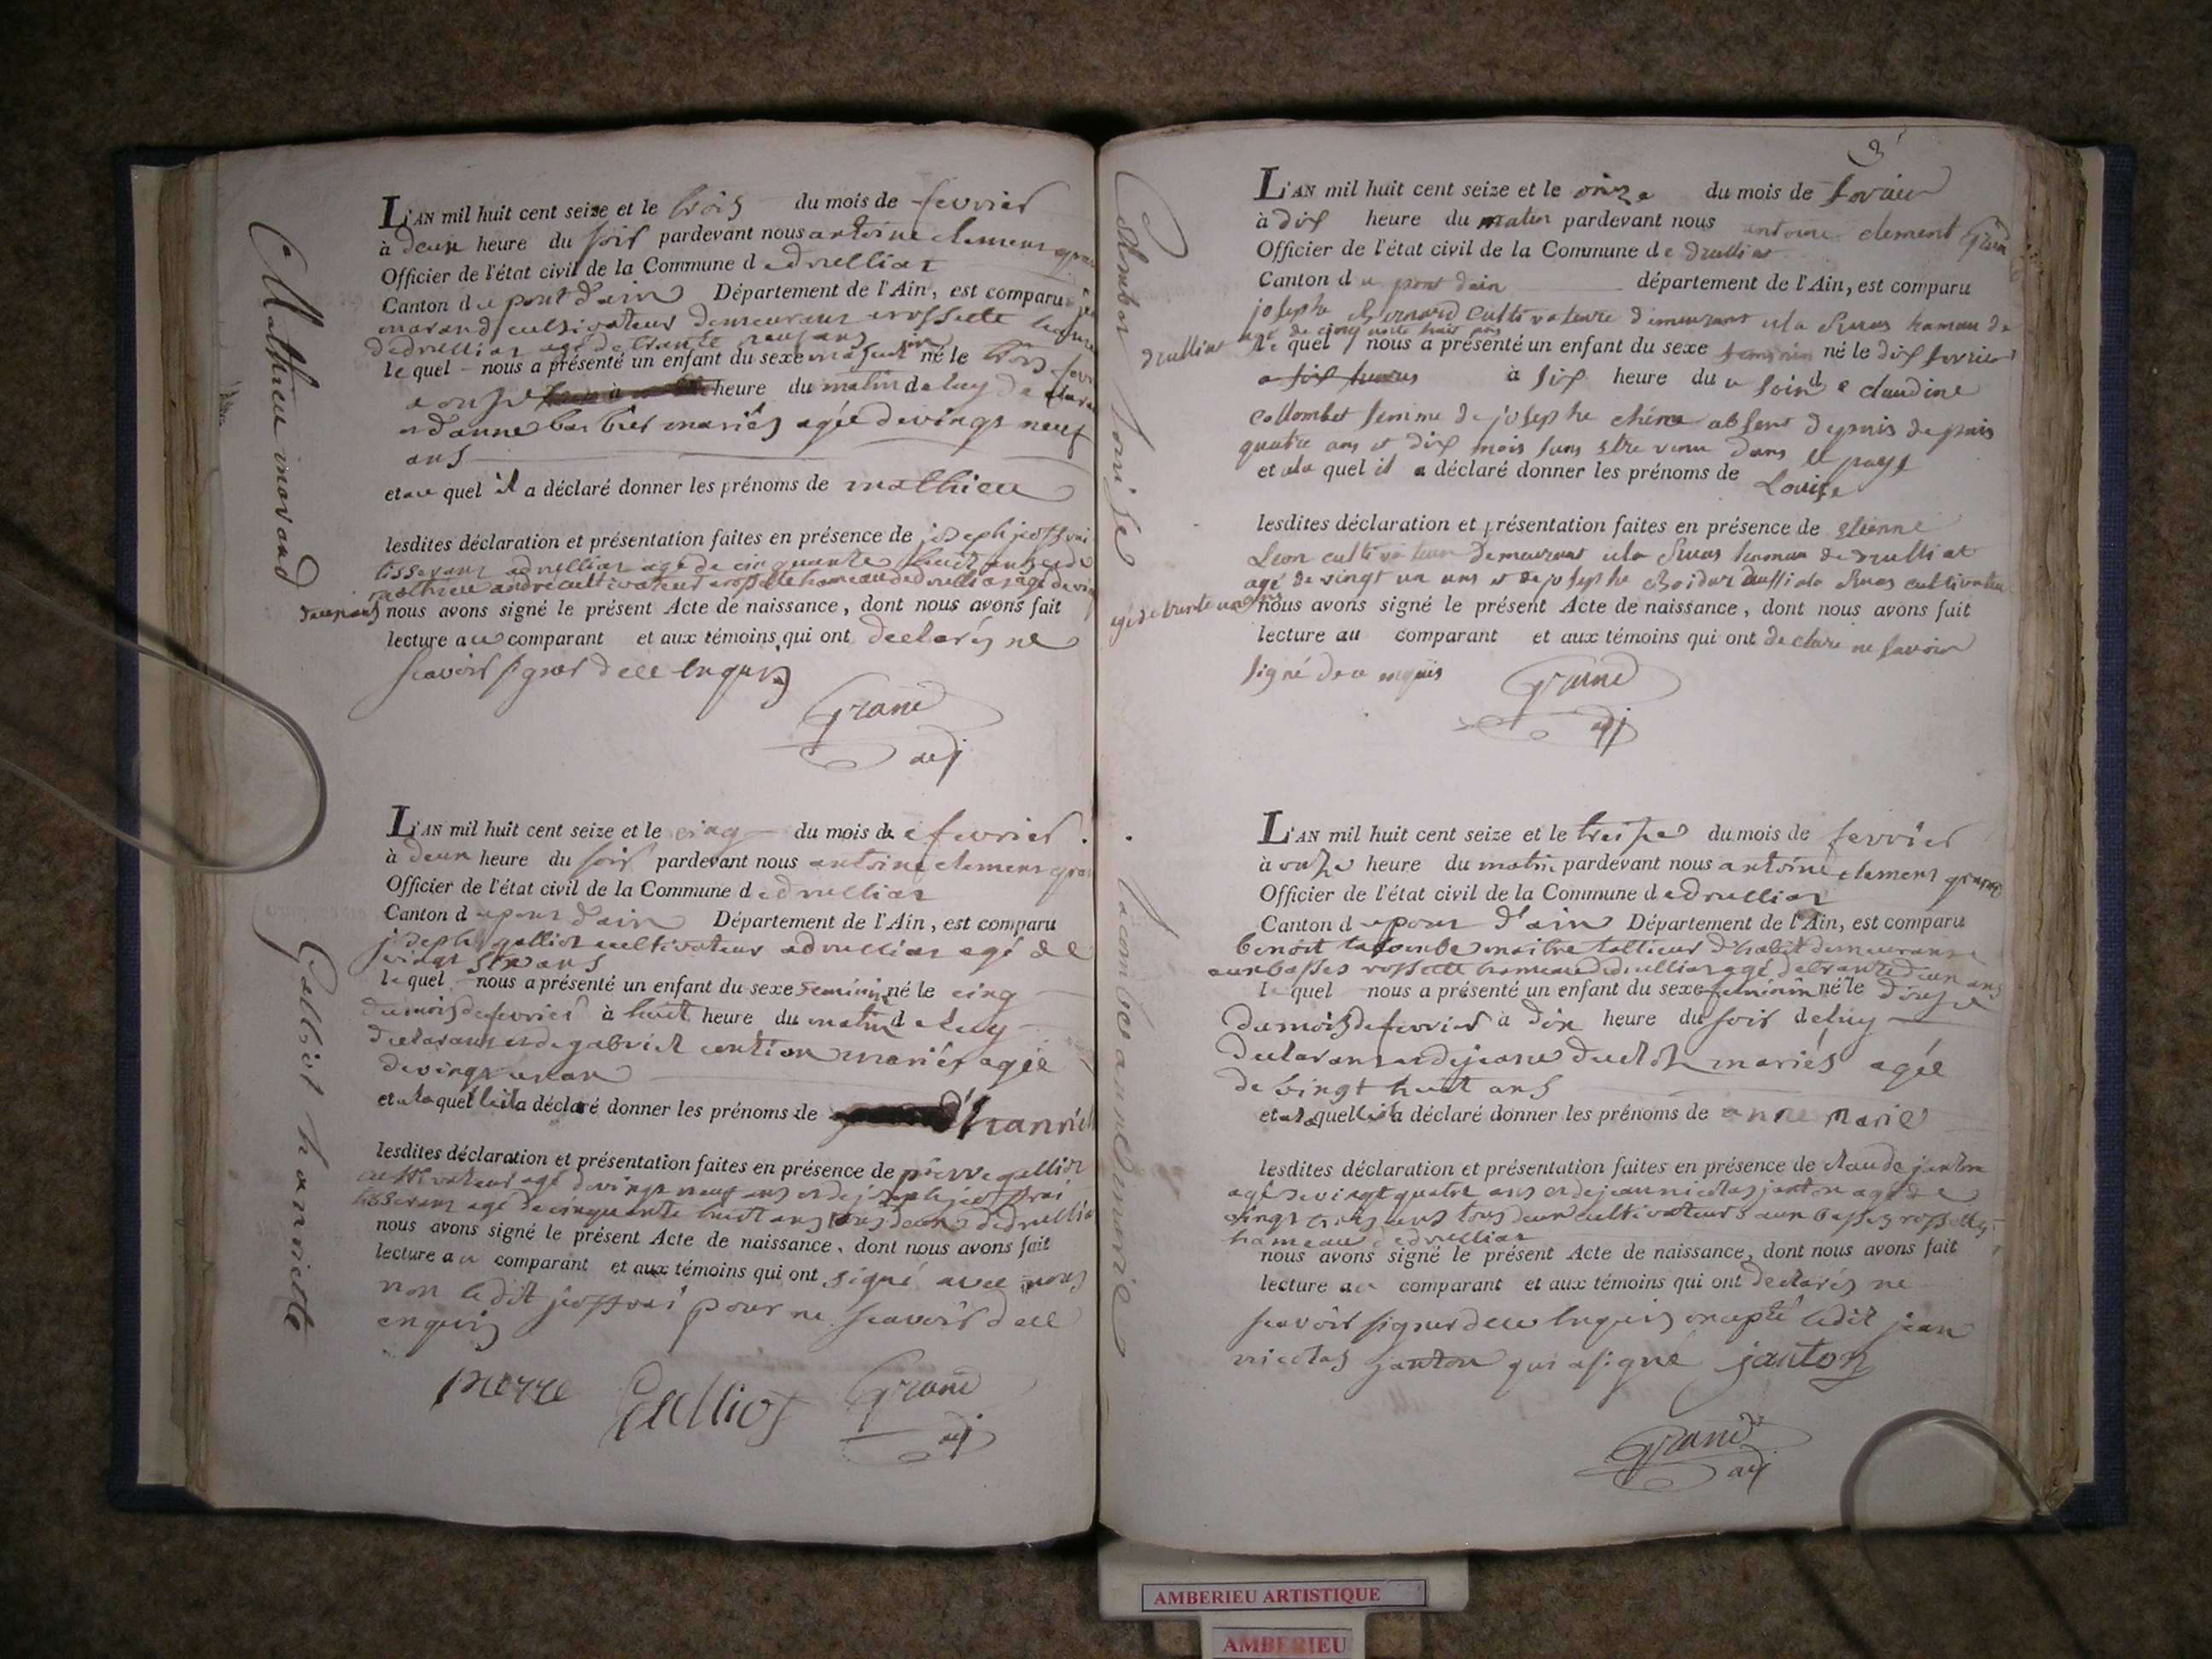 Mathieu morand
L'AN mil huit cent seize et le trois du mois de fevrier
à deux heure du soir pardevant nous antoine clement
Officier de l'état civil de la Commune d e druilliat
Canton d u pont d'ain Département de l'Ain, est comparu
morand cultivateur demeurant a rossette
dedruillias agé de trante neuf ans
le quel nous a présenté un enfant du sexe masculin né le trois
a onze heure du matin de luy de
et d'anne barbier mariés agée de vingt neuf
ans
et au quel il a déclaré donner les prénoms de mathieu
lesdites déclaration et présentation faites en présence de joseph
tisserant a druillias agé de cinquante huit ans et de
mathieu andré cultivateur a rossette hameau de druillias agé de
nous avons signé le présent Acte de naissance, dont nous avons fait
lecture au comparant et aux témoins qui ont declarés ne
scavoir signer de ce enquis
Grand
adj
Galliot hanriette
L'AN mil huit cent seize et le cinq du mois de fevrier
à deux heure du soir pardevant nous antoine clement
Officier de l'état civil de la Commune d e druillias
Canton d u pont d'ain Département de l'Ain, est comparu
joseph galliot cultivateur a druillias agé de
vingt six ans
le quel nous a présenté un enfant du sexe feminin né le cinq
du mois de fevrier à huit heure du matin de luy
declarant et de gabriel mariés agée
de vingt un an
et a laquelle il a déclaré donner les prénoms de hanriette
lesdites déclaration et présentation faites en présence de pierre galliot
cultivateur agé de vingt neuf ans et de joseph
tisserant agé de cinquante huit ans tous deux de druillias
nous avons signé le présent Acte de naissance, dont nous avons fait
lecture au comparant et aux témoins qui ont signé avec nous
non ledit pour ne scavoir de ce
enquis
pierre Galliot Grand
adj
3
Louise
L'AN mil huit cent seize et le onze du mois de fevrier
à dix heure du matin pardevant nous antoine clement Grand
Officier de l'état civil de la Commune d e druillias
Canton d u pont dain département de l'Ain, est comparu
josephe Bernard cultivateure demeurant a la hamau de
druillias agé de cinq vante huit ans
le quel nous a présenté un enfant du sexe feminin né le dix fevrier
a six heures à six heure du soir d e claudine
collombet femme de josephe absent depuis depuis
quatre ans et dix mois sans etre venu dans le pays
et a la quel il a déclaré donner les prénoms de Louise
lesdites déclaration et présentation faites en présence de etienne
Leon cultivateur demeurant a la hamau de druilliat
agé de vingt un ans et de josephe cultivateur
agé de trente un ans nous avons signé le présent Acte de naissance, dont nous avons fait
lecture au comparant et aux témoins qui ont declare ne savoir
signé de ce enquis
Grand
adj
Lacombe anne marie
L'AN mil huit cent seize et le treize du mois de fevrier
à onze heure du matin pardevant nous antoine clement grand
Officier de l'état civil de la Commune d e druillias
Canton d u pont d'ain Département de l'Ain, est comparu
benoit lacombe maitre tallieur d'habit demeurant
aux basses rossette hameau de druillias agé de trante deux ans
le quel nous a présenté un enfant du sexe feminin né le douze
du mois de fevrier à dix heure du soir de luy
declarant et de jeane mariés agée
de vingt huit ans
et a laquelle il a déclaré donner les prénoms de anne marie
lesdites déclaration et présentation faites en présence de claude janton
agé de vingt quatre ans et de jean nicolas janton agé de
vingt trois ans tous deux cultivateurs aux basses rossettes
hameau de druillias
nous avons signé le présent Acte de naissance, dont nous avons fait
lecture au comparant et aux témoins qui ont declarés ne
scavoir signer de ce enquis excepté ledit jean
nicolas janton qui a signé janton
Grand
adj
AMBERIEU ARTISTIQUE
AMBERIEU